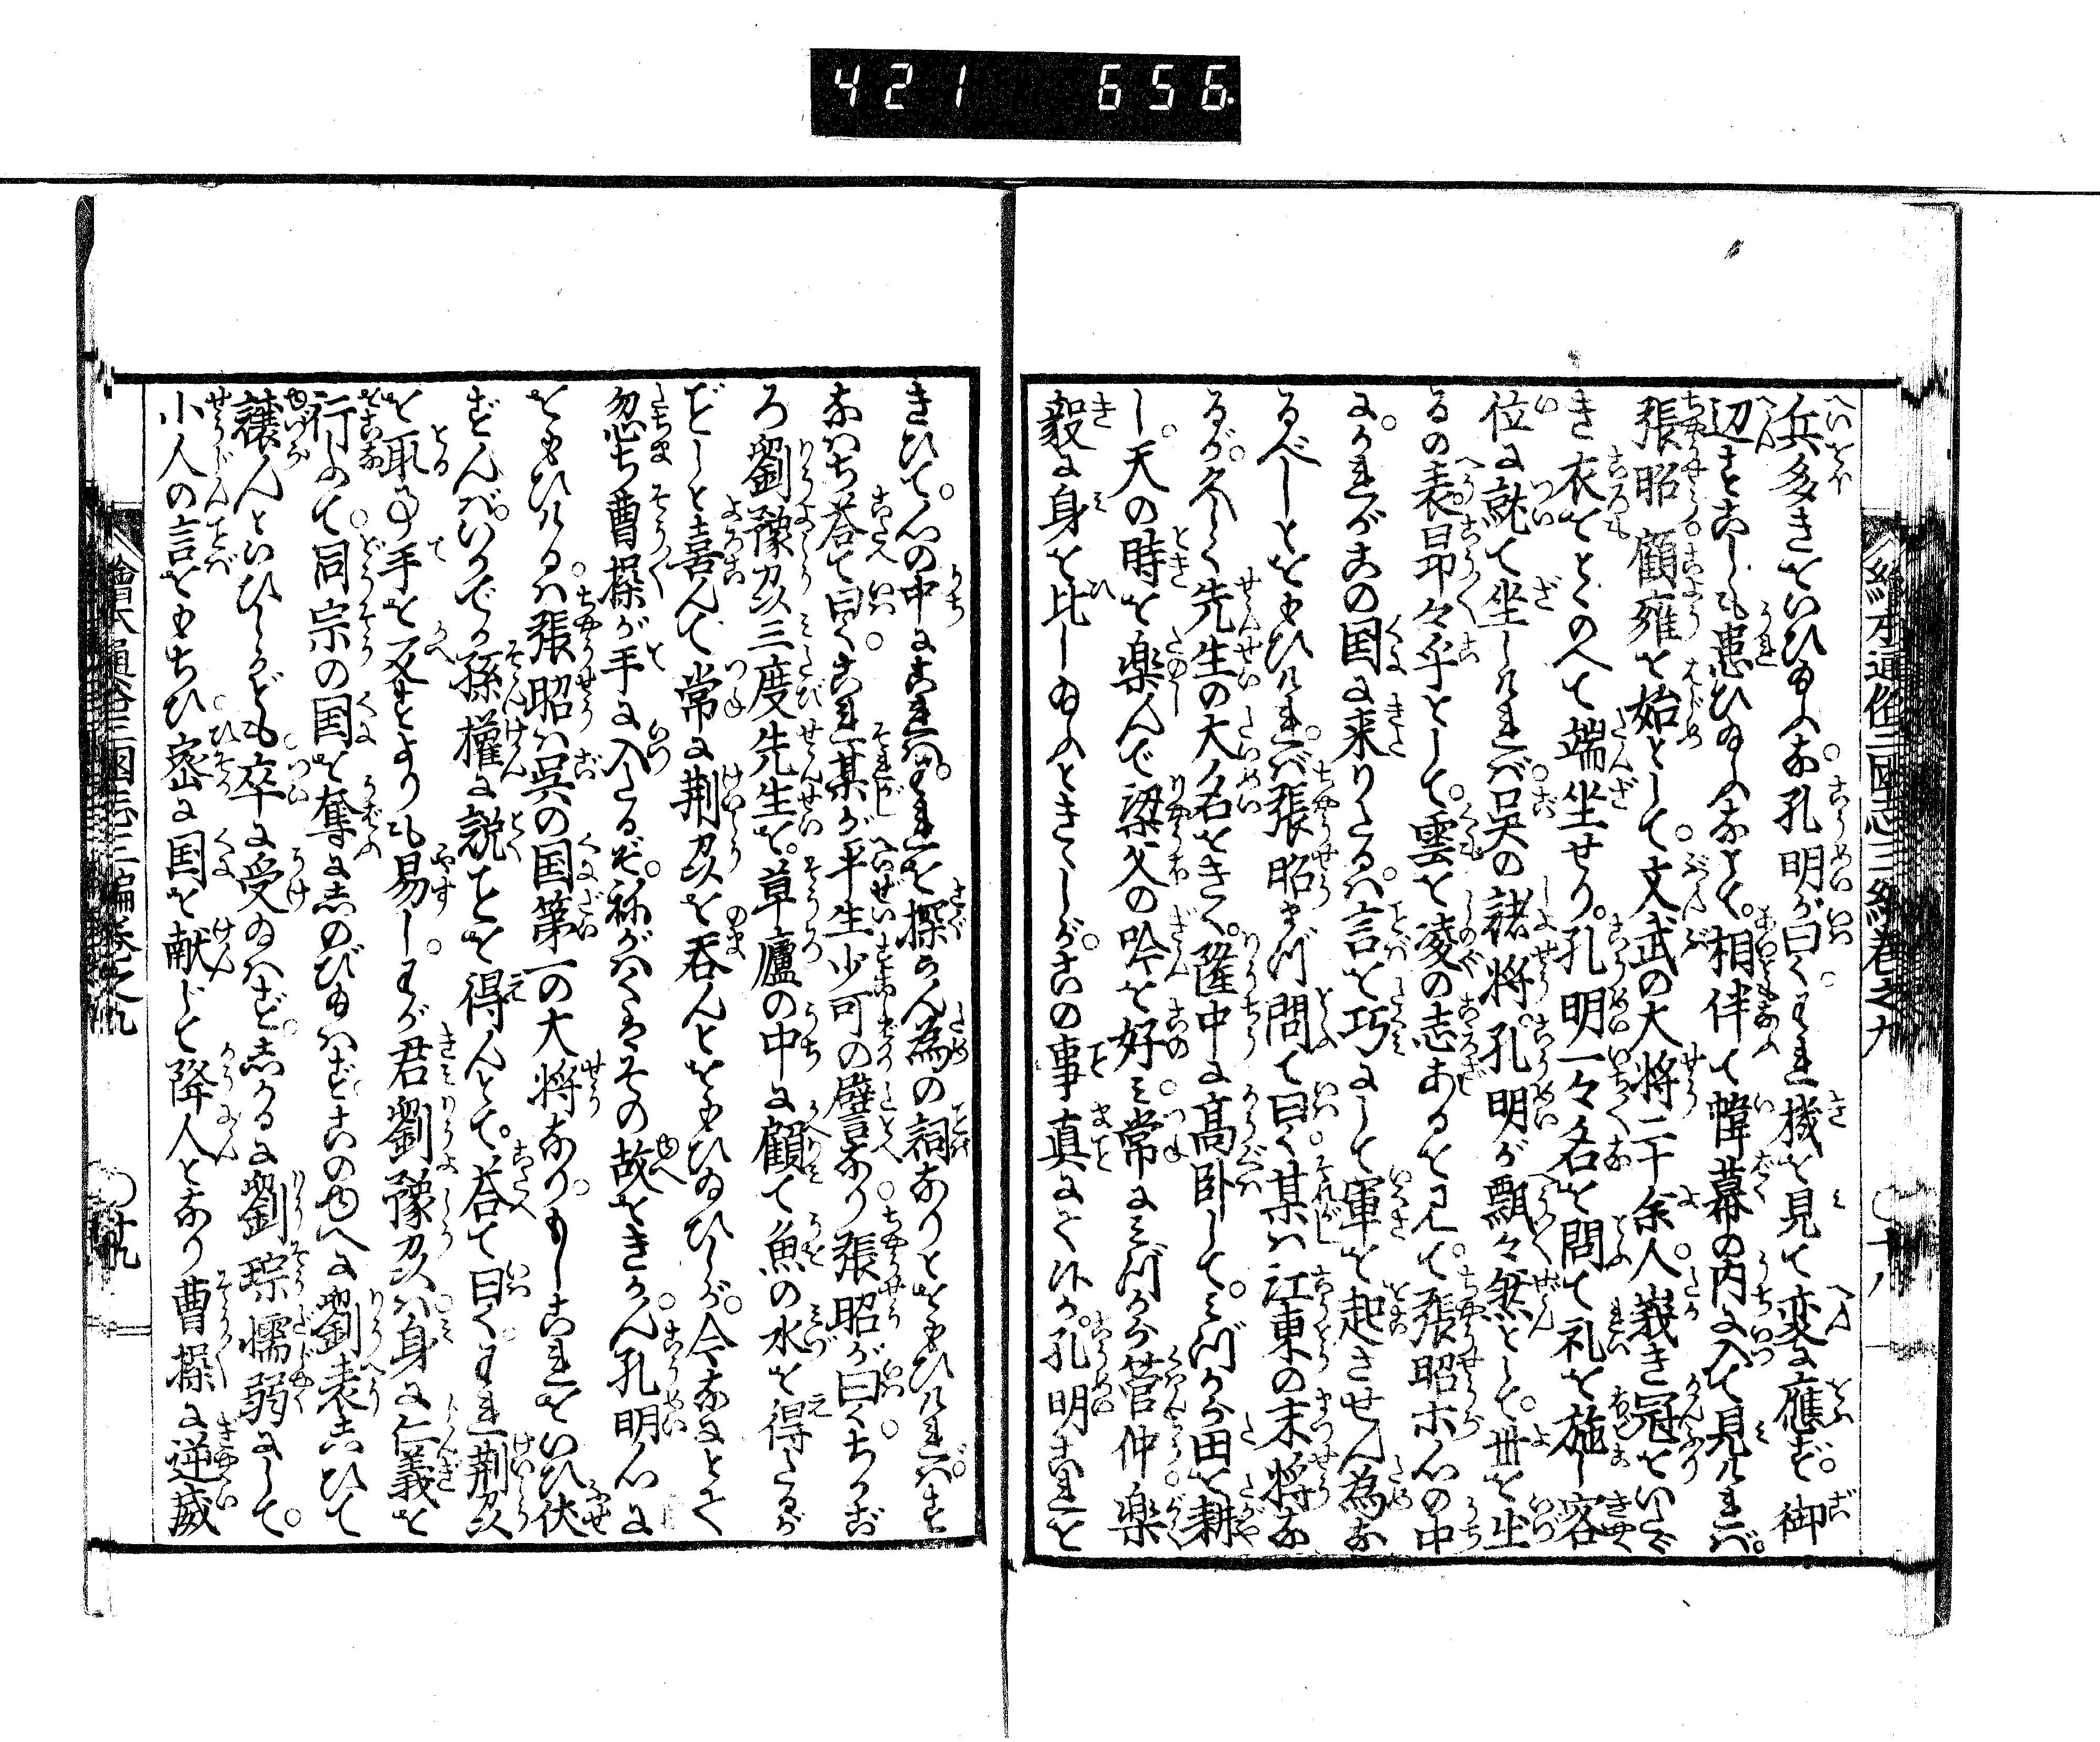 421 656
絵本通俗三国志三編巻之九 〇十八
兵多きをいひ給ふな。孔明が曰く。われ機を見て変に應ず。御
辺すこしも患ひ給ふなとて。相伴て幃幕の内に入て見れば。
張昭顧雍を始として。文武の大将二十余人。峩き冠をいただ
き衣をとゝのへて端坐せり。孔明一々名を問て礼を施し客
位に就て坐しければ。呉の諸将。孔明が飄々然として。世を出
るの表昂々乎として。雲を凌の志あるを見て。張昭ホ心の中
に。かれがこの国に来りたるは。言を巧にして軍を起させん為な
るべしとおもひければ。張昭まづ問て曰く。某は江東の末将な
るが。久く先生の大名をきく。隆中に高卧して。みづから田を耕
し。天の時を楽んで梁父の吟を好み。常にみづから管仲楽
毅に身を比し給ふときゝしが。この事真にて候か。孔明これを
きひて。心の中にこれはわれを探らん為の詞なりとおもひければ。す
なはち荅て曰く。これ某が平生少可の譬なり。張昭が曰くちかご
ろ劉豫刕三度先生を。草廬の中に顧て魚の水を得たるが
ごとしと喜んで常に荆刕を呑んとおもひゐひしが。今なにとて
忽ち曹操が手に入たるぞ。祢がはくはその故をきかん。孔明心に
おもひけるは。張昭は呉の国第一の大将なり。もしこれをいひ伏
ずんば。いかでか孫權に説ことを得んとて。荅て曰く。われ荆刕
を取る事手を反すよりも易し。わが君劉豫刕は。身に仁義を
行ふて。同宗の国を奪にしのび給はず。このゆへに劉表しひて
譲んといひしかども。卒に受給はず。しかるに劉琮懦弱にして。
小人の言をもちひ。密に国を献じて降人となり。曹操に逆威
繪本通俗三国志三編巻之九 〇十九